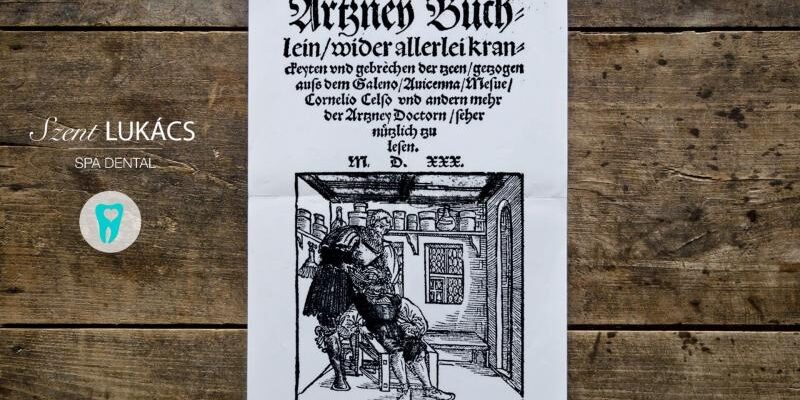 Artzney Buch-
lein/wider allerlei kran-
ckeyten vnd gebrechen der tzeen/getzogen
auſs dem Galeno/Auicenna/Meſue/
Cornelio Celſo vnd andern mehr
der Artzney Doctorn/ſeher
nützlich tzu
leſen.
M. D. XXX.
Szent LUKÁCS
SPA DENTAL